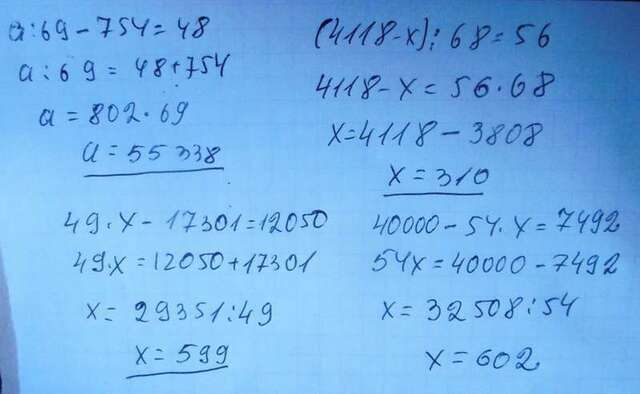 a:69-754=48
a:69=48+754
a=802·69
a=55338
(4118-x):68=56
4118-x=56·68
x=4118-3808
x=310
49·x-17301=12050
49·x=12050+17301
x=29351:49
x=599
40000-54·x=7492
54x=40000-7492
x=32508:54
x=602